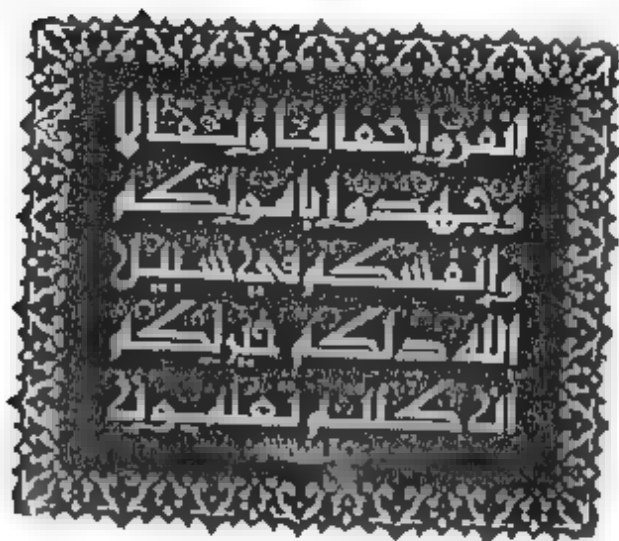 انفروا خفافا وثقالا
وجهدوا بامولكم
وانفسكم في سبيل
الله ذلكم خير لكم
ان كنتم تعلمون